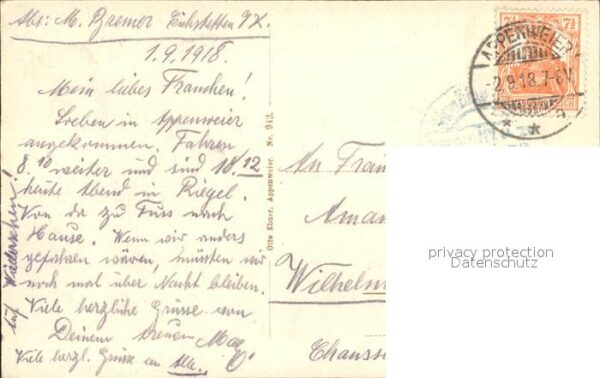 Abs: M. Bremer Eichstetten 9/X.
1.9.1918.
Mein liebes Frauchen!
Soeben in Appenweier
angekommen. Fahren
8.10 weiter und sind 10.12
heute Abend in Riegel.
Von da zu Fuss nach
Hause. Wenn wir anders
gefahren wären, müssten wir
noch mal über Nacht bleiben.
Viele herzliche Grüsse von
Deinem treuen Max
Viele herzl. Grüsse an Alle.
Auf Wiedersehen!
Otto Ebner, Appenweier. Nr. 942.
7½
APPENWEIER
2.9.18.7-8V.
An Frau
Aman
Wilhelm
Chausse
privacy protection
Datenschutz